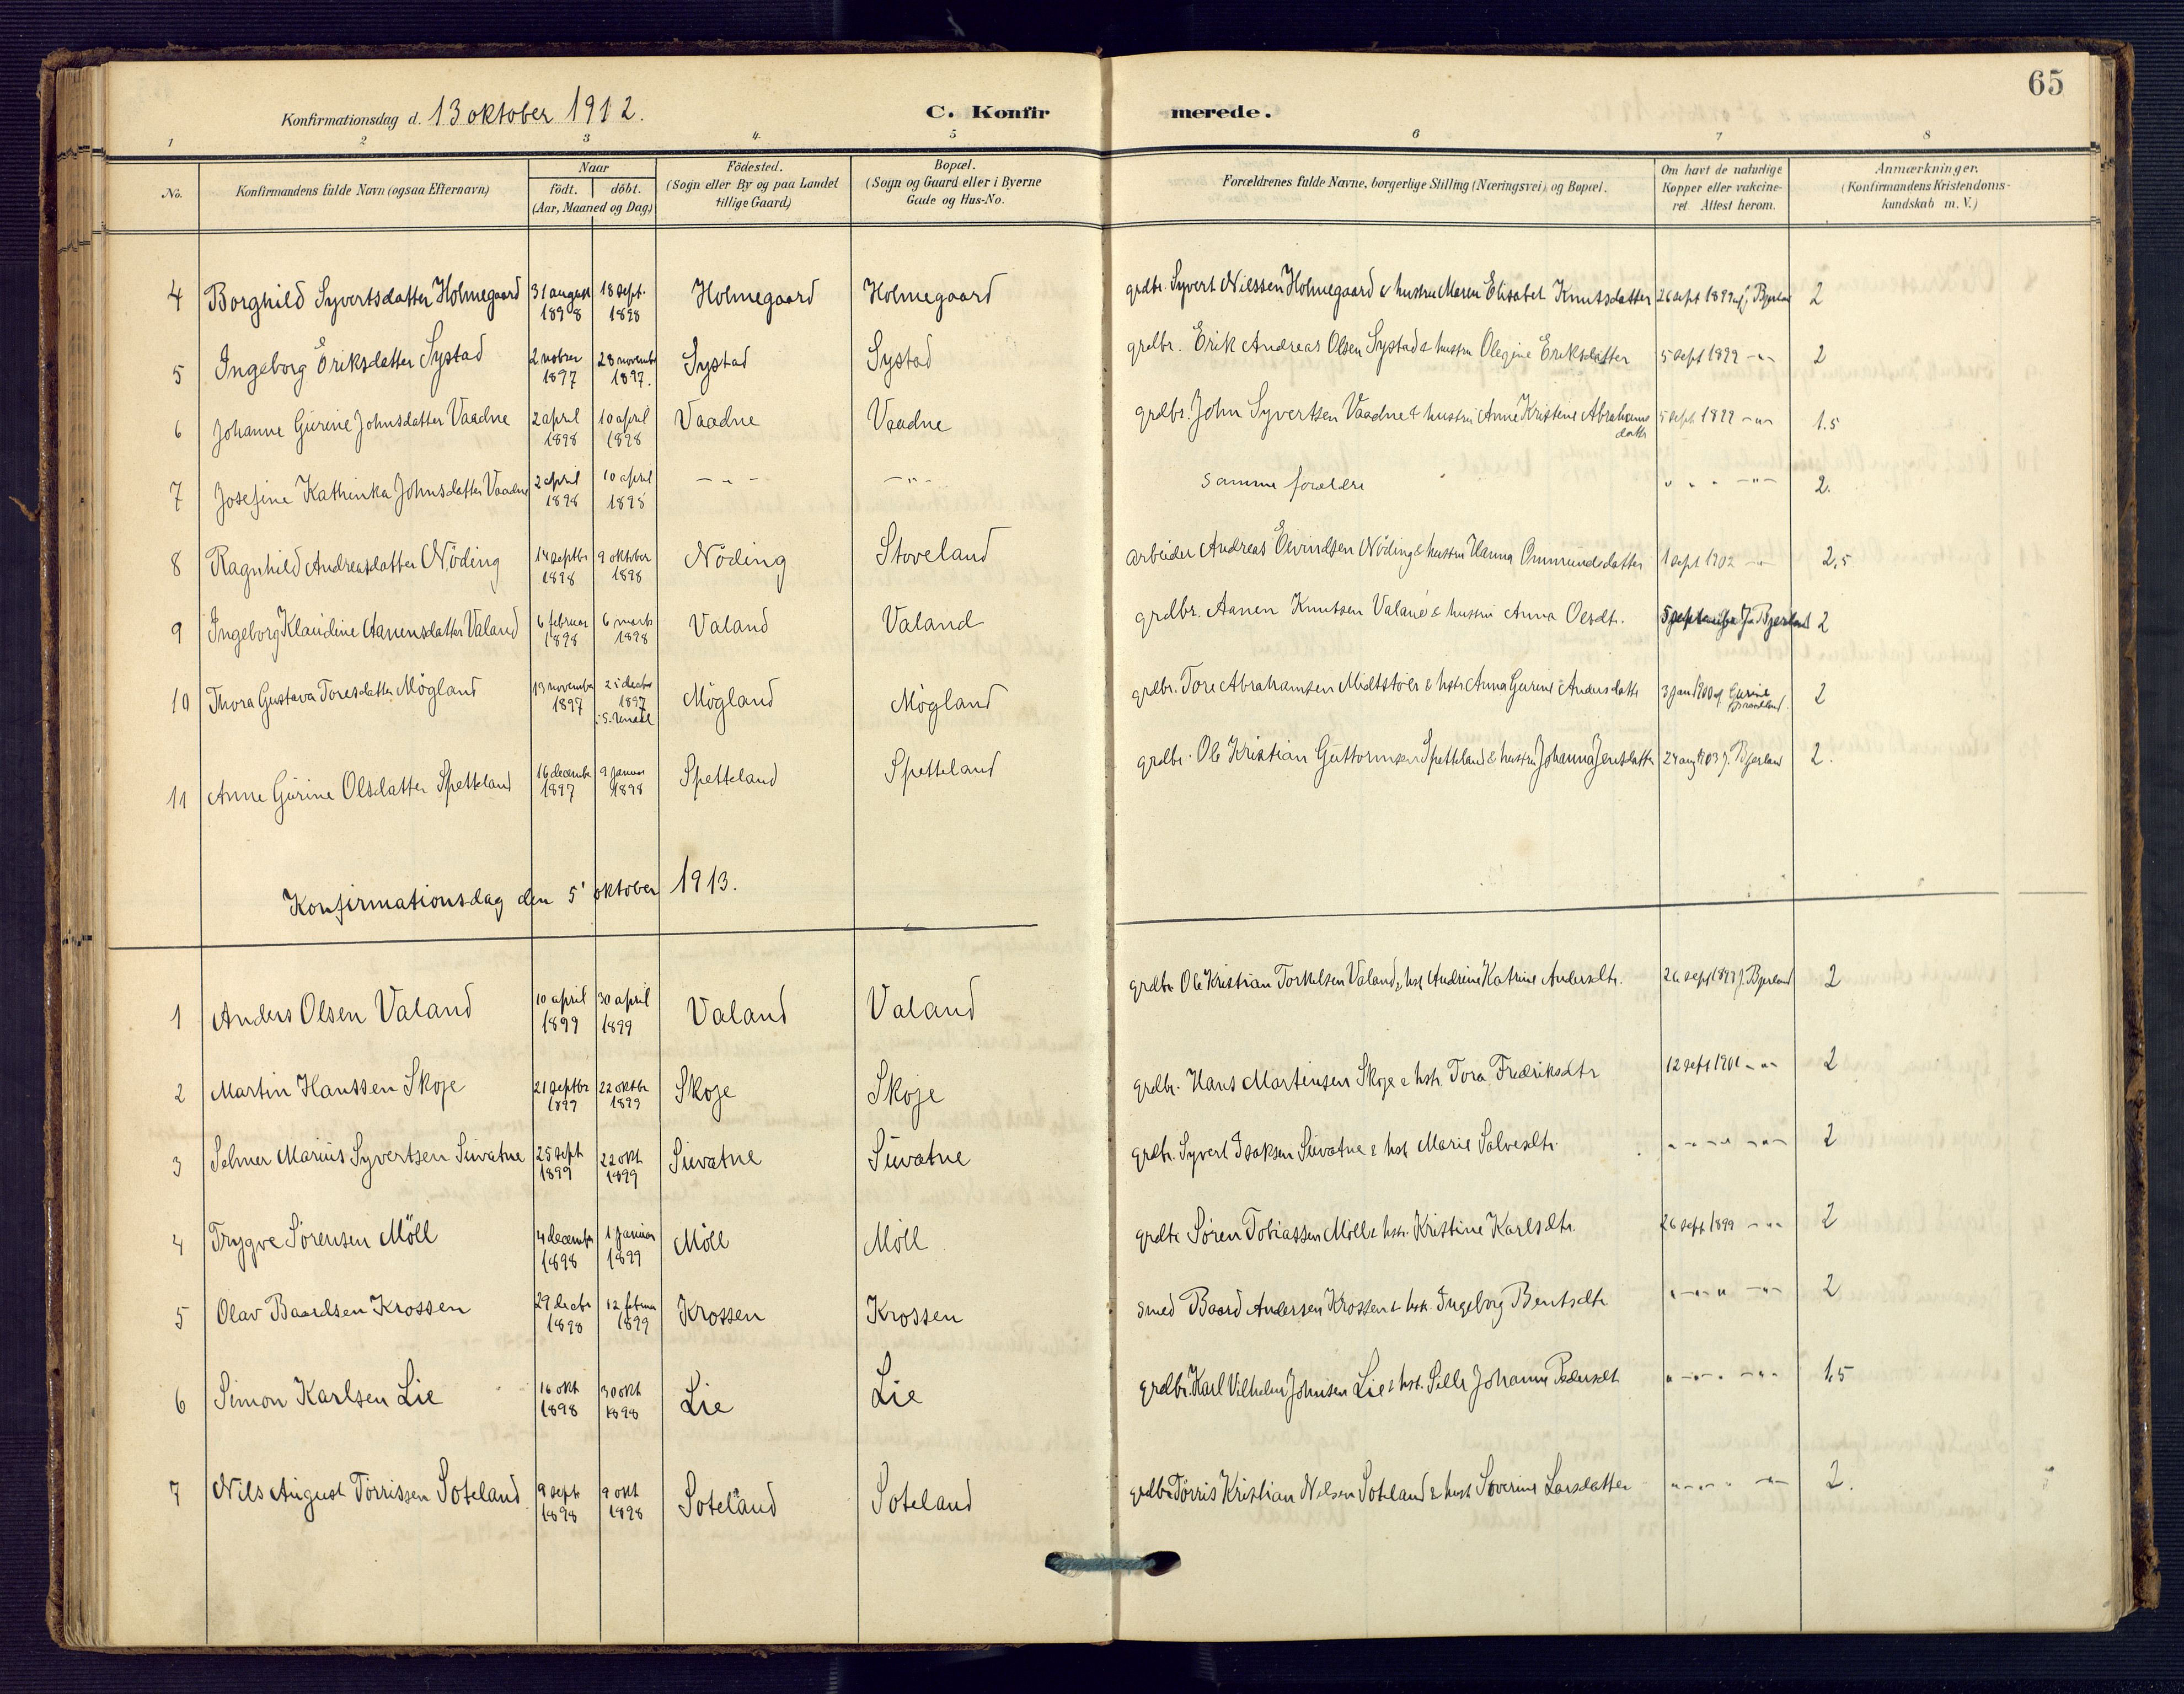 65
Konfirmationsdag d. 13 oktober 1912. C. Konfirmerede.
1 2 3 4. 5 6 7 8
No. Konfirmandens fulde Navn (ogsaa Efternavn) Naar födt. döbt. (Aar, Maaned og Dag) Födested. (Sogn eller By og paa Landet tillige Gaard) Bopæl. (Sogn og Gaard eller i Byerne Gade og Hus-No. Forældrenes fulde Navne, borgerlige Stilling (Næringsvei) og Bopæl. Om havt de naturlige Kopper eller vakcineret. Attest herom. Anmærkninger. (Konfirmandens Kristendomskundskab m. V.)
4 Borghild Syvertsdatter Holmegaard 31 august 1898 18 sept. 1898 Holmegaard Holmegaard grdbr. Syvert Nilssen Holmegaard & hustru Maren Elisabet Knutsdatter 26 sept 1899 af J. Bjerland 2
5 Ingeborg Eriksdatter Systad 2 1897 28 novemb 1897. Systad Systad grdbr. Erik Andreas Olsen Systad & hustru Olegine Eriksdatter 5 sept 1899 -"- 2
6 Johanne Gurine Johnsdatter Vaadne 2 april 1898 10 april 1898 Vaadne Vaadne grdbr. John Syvertsen Vaadne & hustru Anne Kristine Abrahams datt 5 sept 1899 -"- 1.5
7 Josefine Kathinka Johnsdatter Vaadne 2 april 1898 10 april 1898 - " - - " - Samme forældre " " " -"- 2.
8 Ragnhild Andreasdatter Nöding 14 septbr 1898 9 oktober 1898 Nöding Stoveland arbeider Andreas Eivindsen Nöding & hustru Hanna Ommundsdatter 1 sept 1902 -"- 2.5
9 Ingeborg Klaudine Aanensdatter Valand 6 februar 1898 6 marts 1898 Valand Valand grdbr. Aanen Knutsen Valand & hustru Anna Olsdt. J. Bjerland 2
10 Thora Gustava Toresdatter Mögland 13 november 1897 25 decbr 1897 Mögland Mögland grdbr. Tore Abrahamsen Midtstöl & hstr Anna Gurine Andersdatt 3 jan 1900 af Gurine 2
11 Anne Gurine Olsdatter Spetteland 16 decembe 1897 9 januar 1898 Spetteland Spetteland grdbr. Ole Kristian Guttormsen Spetteland & hustru Johanna Jensdatter 24 aug 1903 J. Bjerland 2.
Konfirmationsdag den 5' oktober 1913.
1 Anders Olsen Valand 10 april 1899 30 april 1899 Valand Valand grdbr Ole Kristian Torkelsen Valand & hst Andrine Katrine Andersdtr. 26 sept 1899 J. Bjerland 2
2 Martin Hanssen Skoje 21 septbr 1899 22 oktbr 1899 Skoje Skoje grdbr. Hans Martinsen Skoje & hstr. Tora Fredriksdtr 12 sept 1901 -"- 2
3 Selmer Marius Syvertsen Suvatne 25 sept 1899 22 okt 1899 Suvatne Suvatne grdbr. Syvert Isaksen Suvatne & hst Marie Salvesdtr. " - " - " - " - 2
4 Trygve Sörensen Möll 4 decembr 1898 1 januar 1899 Möll Möll grdbr Sören Tobiassen Möll & hstr. Kristine Karlsdtr. 26 sept 1899 -"- 2
5 Olav Baardsen Krossen 29 decbr 1898 12 februar 1899 Krossen Krossen smed Baard Andersen Krossen & hstr. Ingeborg Bentsdtr " - " " -"- 2
6 Simon Karlsen Lie 16 okt 1898 30 okt 1898 Lie Lie grdbr. Karl Vilhelm Johnsen Lie & hst. Sille Johanne Pedersdt. " - " " -"- 1.5
7 Nils August Törrissen Soteland 9 sept 1898 9 okt 1898 Soteland Soteland grdbr Törris Kristian Nilsen Soteland & hust Severine Larsdatter " - " - " -"- 2.